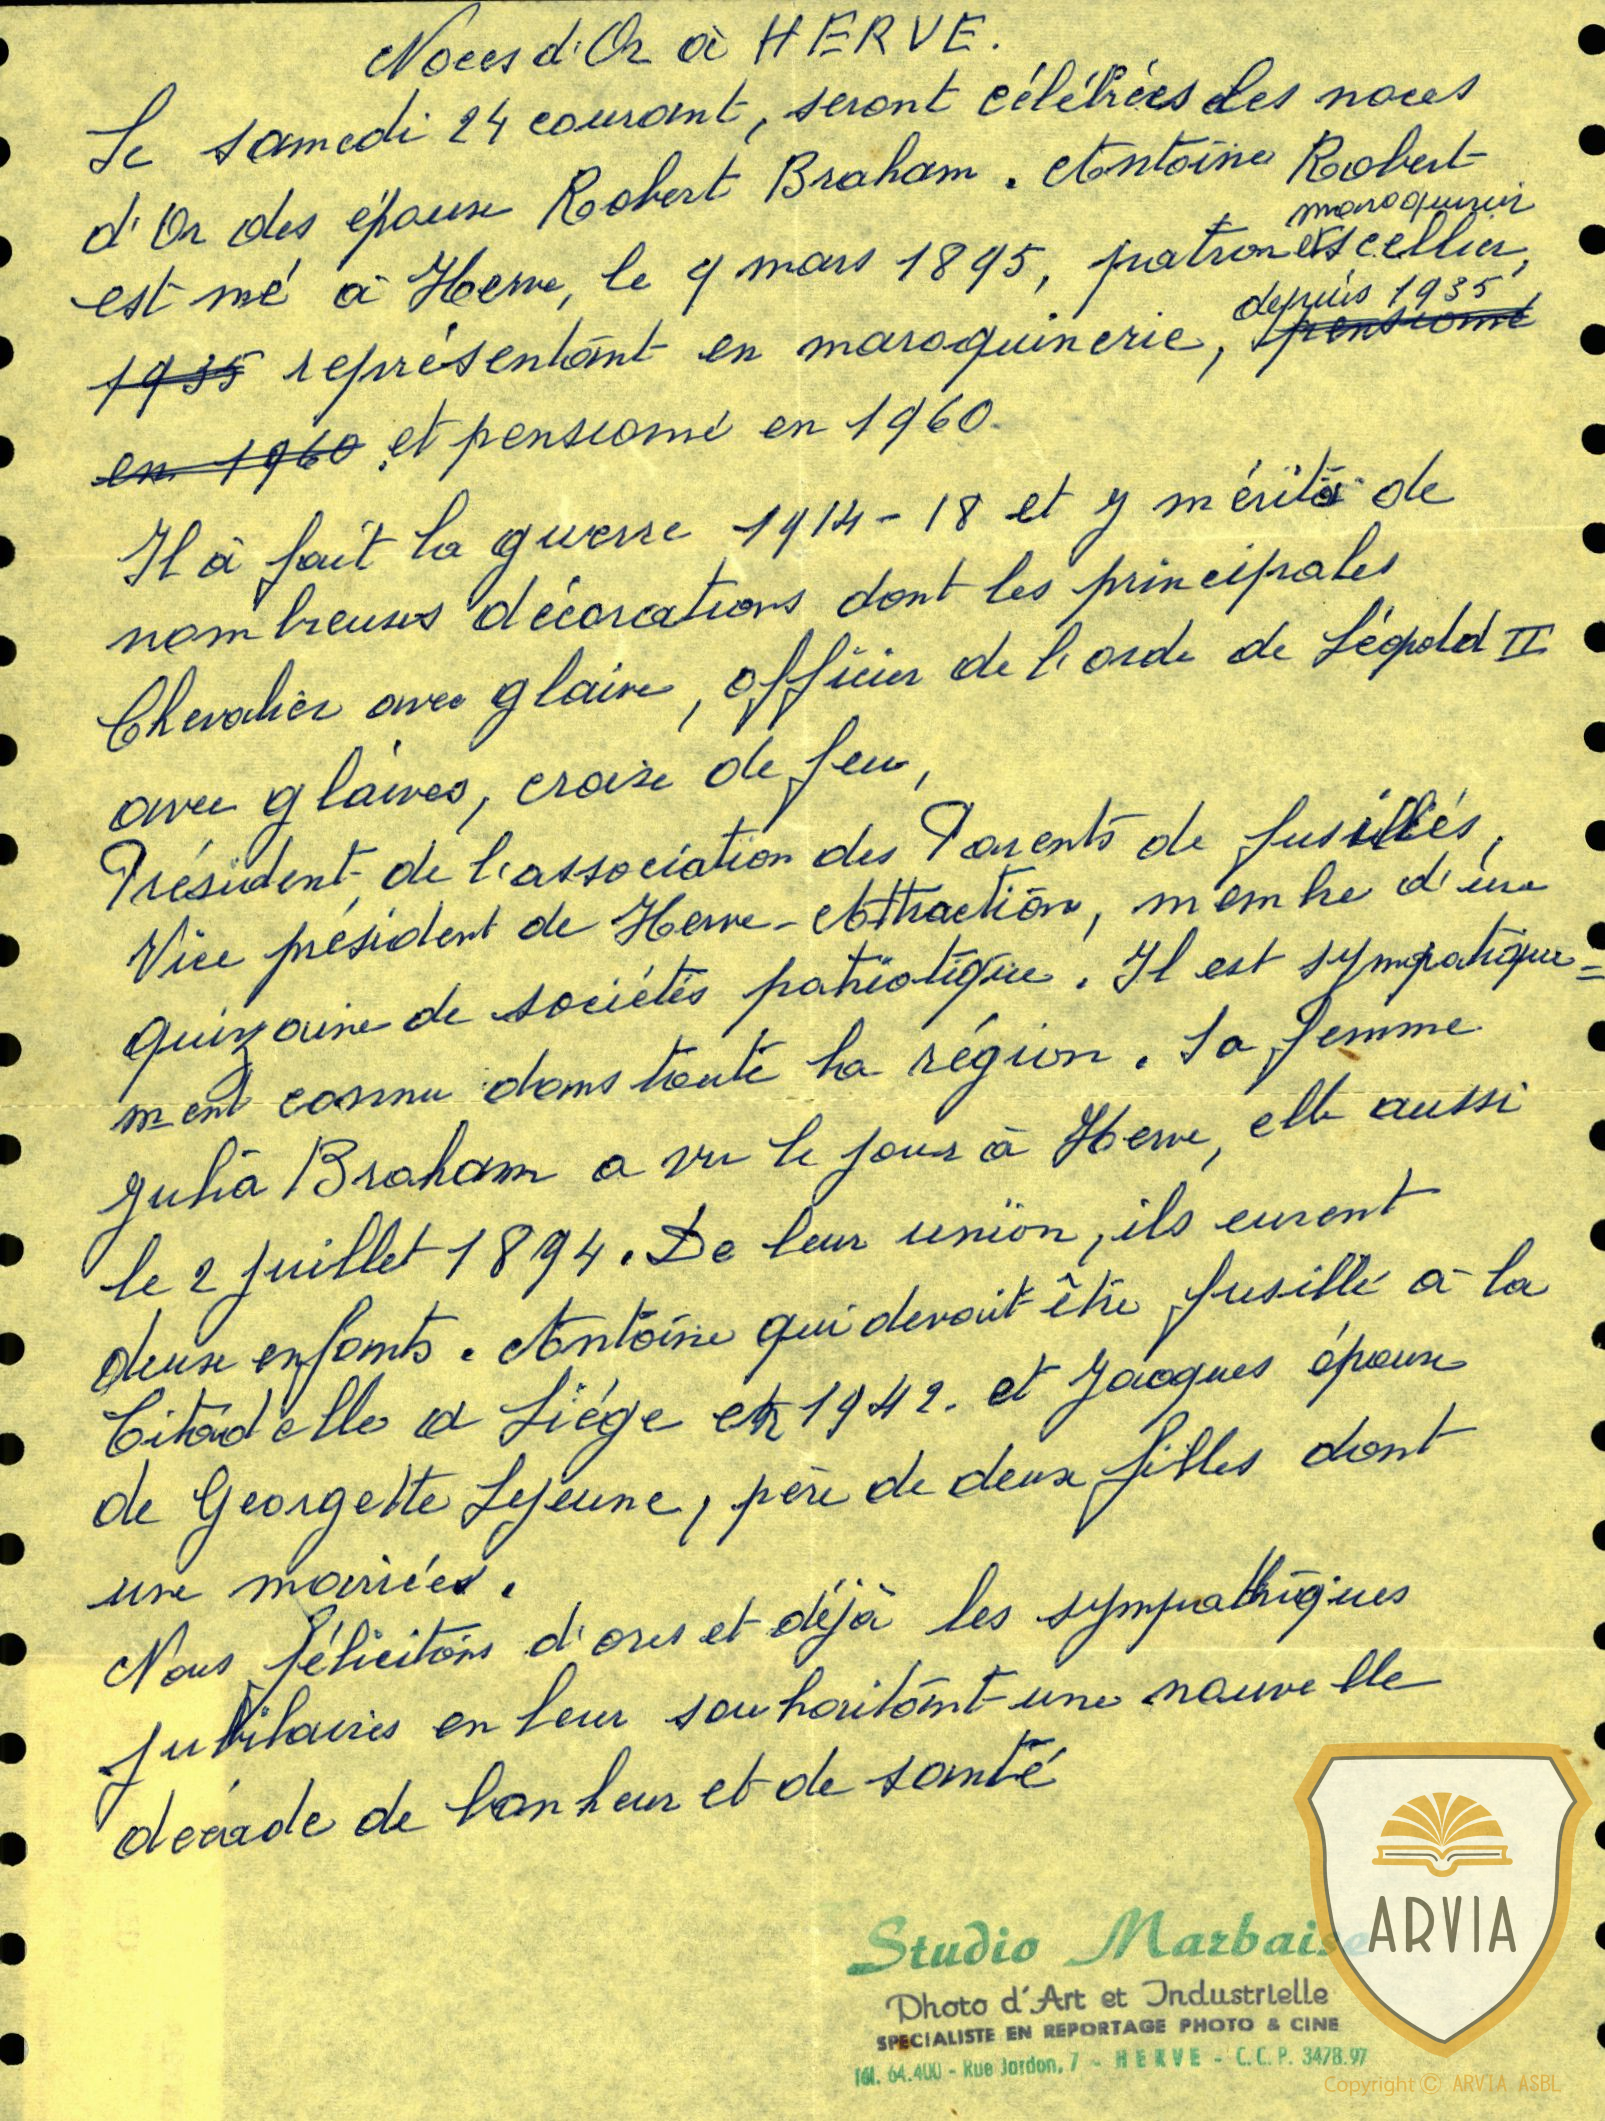 Noces d'Or à HERVE.
Le samedi 24 courant, seront célébrées les noces
d'Or des époux Robert Braham. Antoine Robert
est né à Herve, le 9 mars 1895, patron maroquinier et scellier,
1935 représentant en maroquinerie, depuis 1935 pensionné
en 1960 et pensionné en 1960.
Il à fait la guerre 1914-18 et y mérita de
nombreuses décorations dont les principales
Chevalier avec glaive, officier de l'orde de Léopold II
avec glaives, croix de feu,
Président de l'association des Parents de fusillés,
Vice président de Herve-Attraction, membre d'une
quinzaine de sociétés patriotique. Il est sympatique=
ment connu dans toute la région. Sa femme
Julia Braham a vu le jour à Herve, elle aussi
le 2 juillet 1894. De leur union, ils eurent
deux enfants. Antoine qui devait être fusillé à la
Citadelle à Liége en 1942. et Jacques époux
de Georgette Lejeune, père de deux filles dont
une mariées.
Nous félicitons d'ores et déjà les sympathiques
jubilaires en leur souhaitant une nouvelle
décade de bonheur et de santé
Studio Marbaise
Photo d'Art et Industrielle
SPECIALISTE EN REPORTAGE PHOTO & CINE
Tél. 64.400 - Rue Jardon, 7 - HERVE - C.C.P. 3478.97
ARVIA
Copyright © ARVIA ASBL